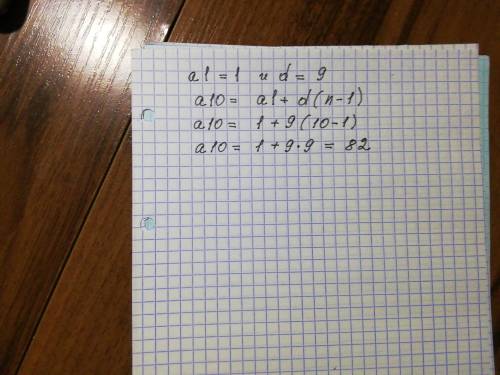 a1 = 1 и d = 9
a10 = a1 + d(n-1)
a10 = 1 + 9(10-1)
a10 = 1 + 9·9 = 82